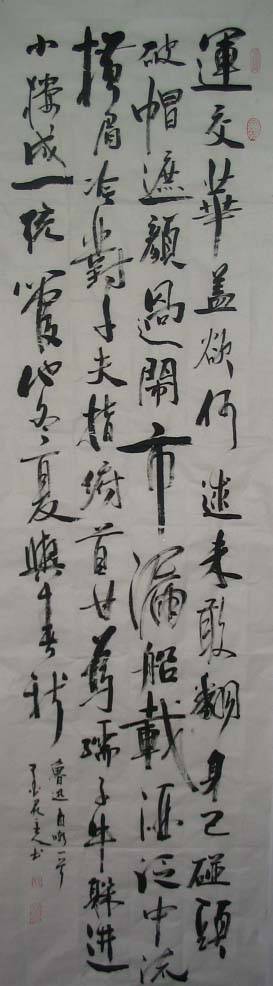 運交華盖欲何逑未敢翻身已碰頭
破帽遮顔過鬧市漏船載酒泛中流
橫眉冷對千夫指俯首甘為孺子牛躲進
小樓成一統管他冬夏與春秋
魯迅自嘲一首